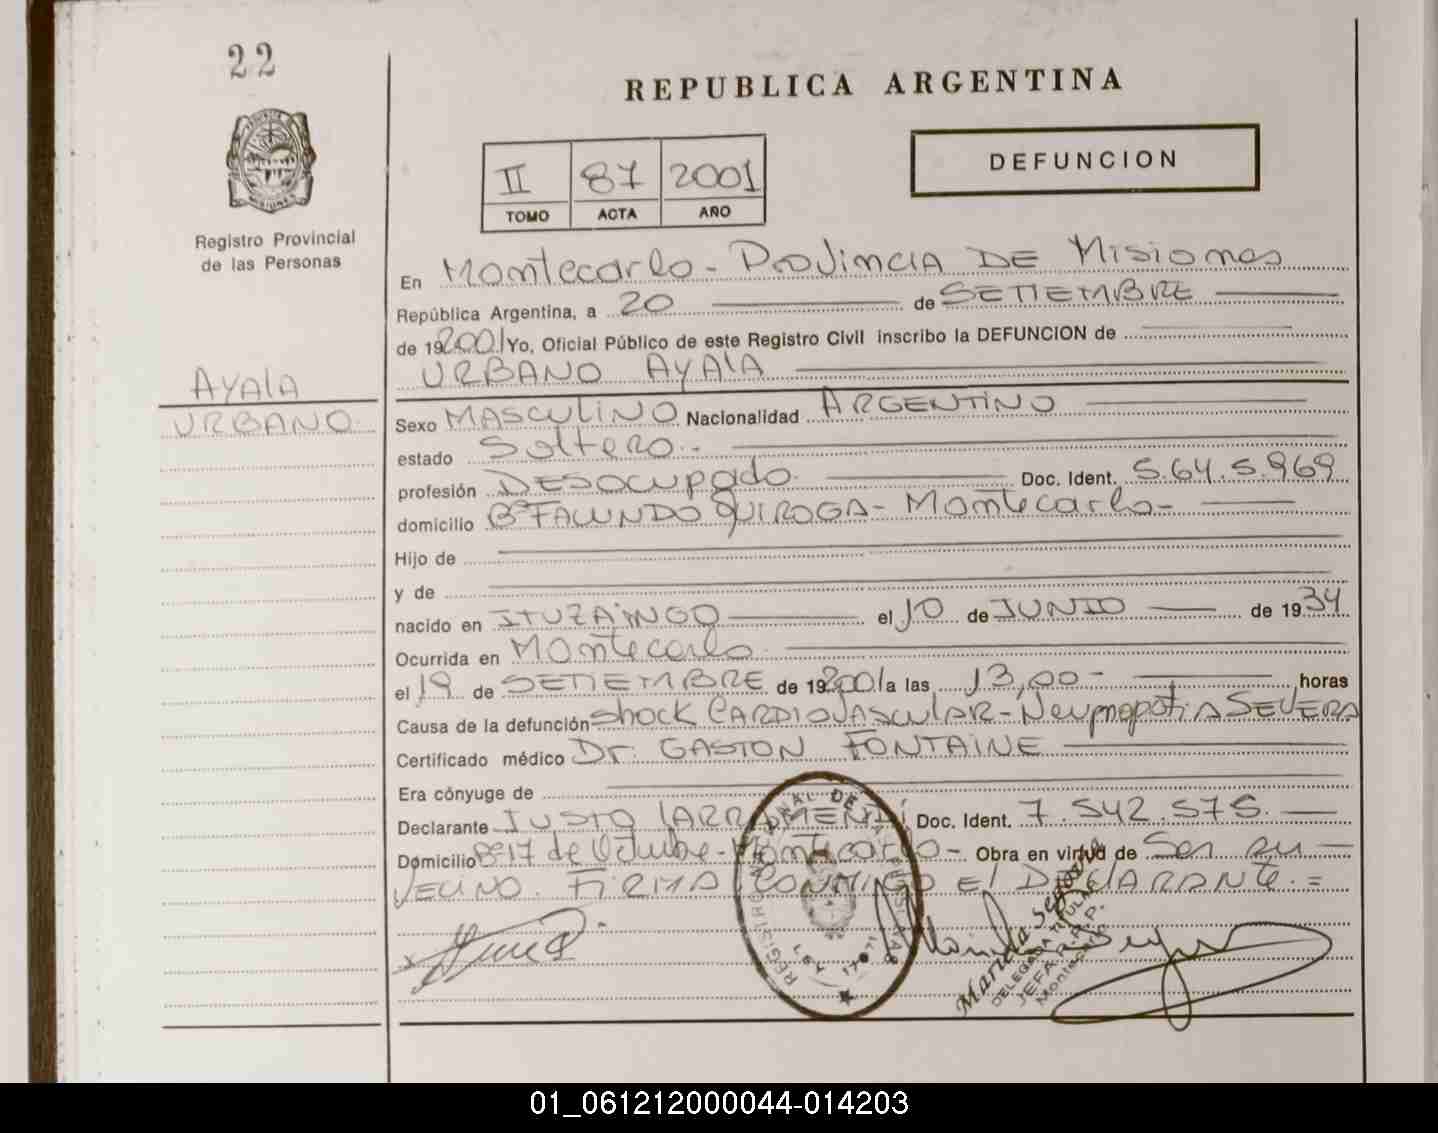 22
REPUBLICA ARGENTINA
II 87 2001
TOMO ACTA AÑO
DEFUNCION
Registro Provincial
de las Personas
En Montecarlo - Provincia DE Misiones
República Argentina, a 20 de SETIEMBRE
de 192001 Yo, Oficial Público de este Registro Civil inscribo la DEFUNCION de
URBANO AYALA
AYALA
URBANO
Sexo MASCULINO Nacionalidad ARGENTINO
estado Soltero.-
profesión DESOCUPADO Doc. Ident. 5.645.969
domicilio Bº FACUNDO QUIROGA - Montecarlo -
Hijo de
y de
nacido en ITUZAINGO el 10 de JUNIO de 1934
Ocurrida en Montecarlo
el 19 de SETIEMBRE de 192001 a las 13,00 - horas
Causa de la defunción Shock CARDIOVASCULAR - Neumopatia SEVERA
Certificado médico Dr. GASTON FONTAINE
Era cónyuge de
Declarante JUSTO LARRAMENDI Doc. Ident. 7.542.575.
Domicilio Bº 17 de Octubre - Montecarlo - Obra en virtud de Ser su
VECINO. FIRMA CONMIGO El DECLARANTE. =
REGISTRO DE LAS
LEY 17.671
DELEGADA TITULAR
JEFA R.P.P.
01_061212000044-014203